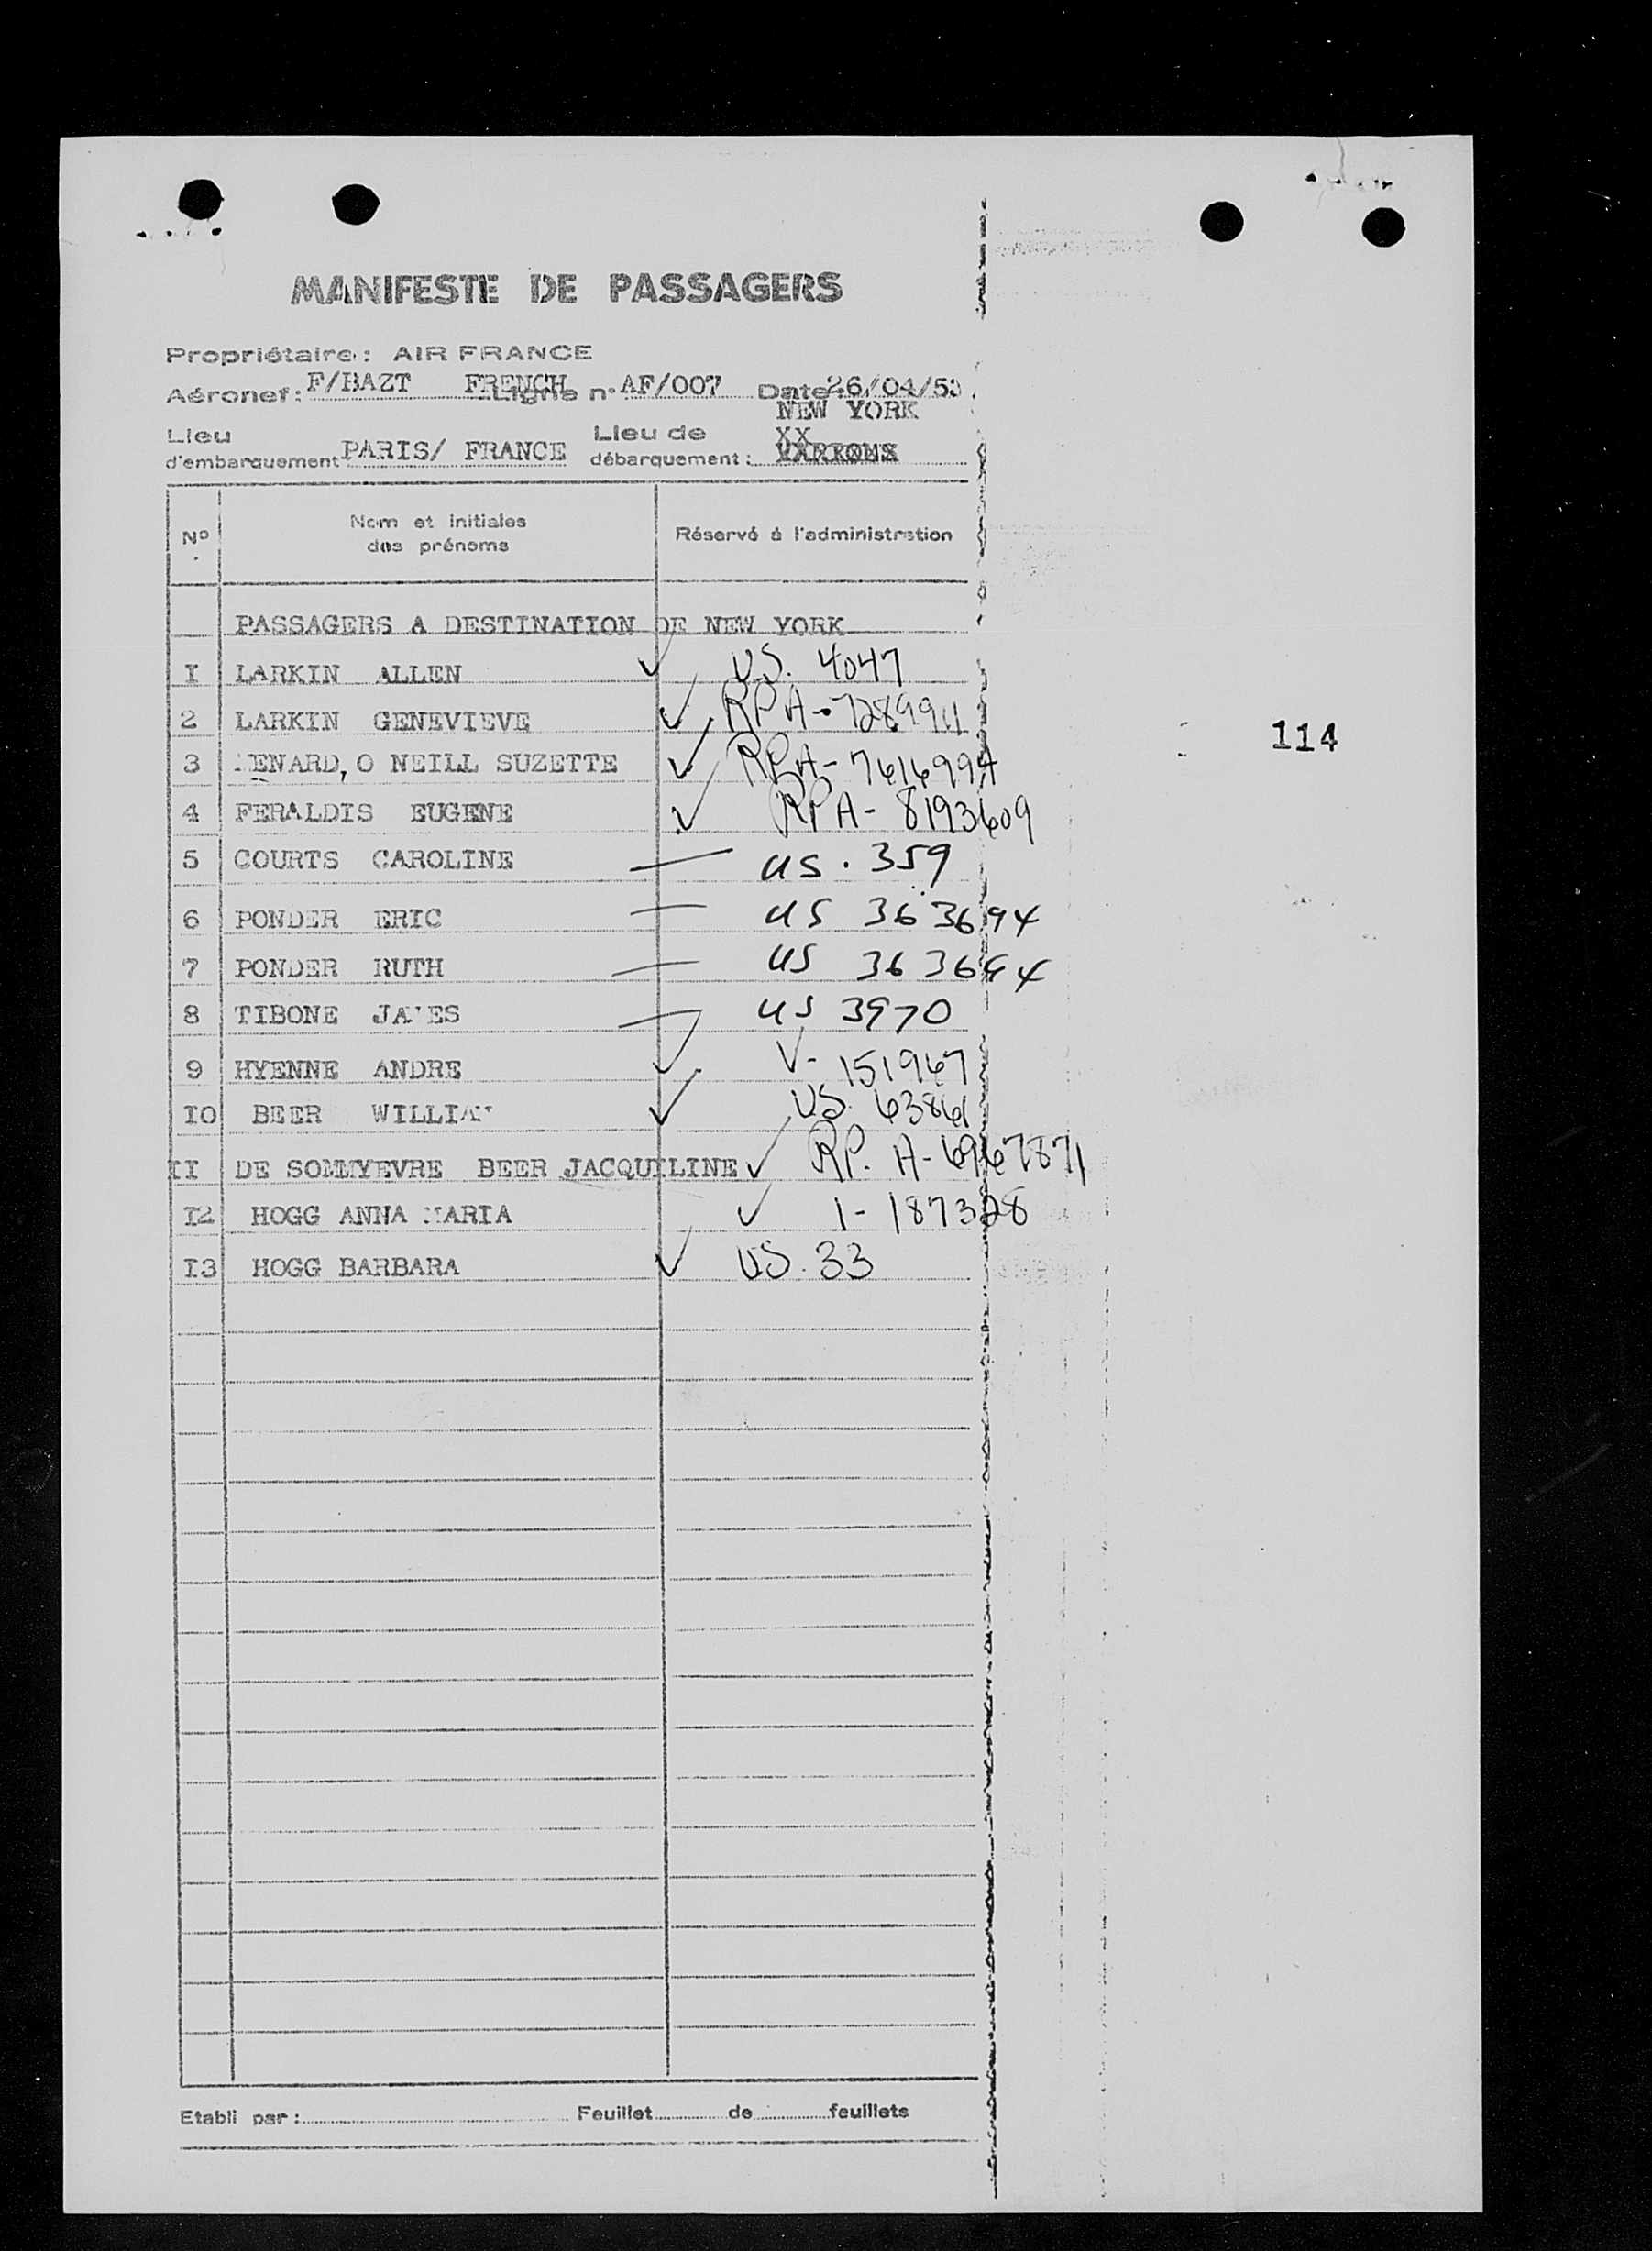 MANIFESTE DE PASSAGERS
Propriétaire: AIR FRANCE
Aéronef: F/BAZT FRENCH Ligne n° AF/007 Date: 26/04/53
NEW YORK
Lieu d'embarquement PARIS/ FRANCE Lieu de débarquement: XX
N° Nom et initiales des prénoms Réservé à l'administration
PASSAGERS A DESTINATION DE NEW YORK
I LARKIN ALLEN ✓ US. 4047
2 LARKIN GENEVIEVE ✓ RPA-
3 O NEILL SUZETTE ✓
4 FERALDIS EUGENE ✓ RPA-8193609
5 COURTS CAROLINE — US. 359
6 PONDER ERIC — US 363694
7 PONDER RUTH — US 363694
8 TIBONE JAMES — US 3970
9 HYENNE ANDRE ✓ V-151967
I0 BEER WILLIAM ✓ US. 63861
II DE SOMMYEVRE BEER JACQUELINE ✓ RP. A-6967871
I2 HOGG ANNA MARIA ✓ 1-187328
I3 HOGG BARBARA ✓ US. 33
114
Etabli par: Feuillet de feuillets